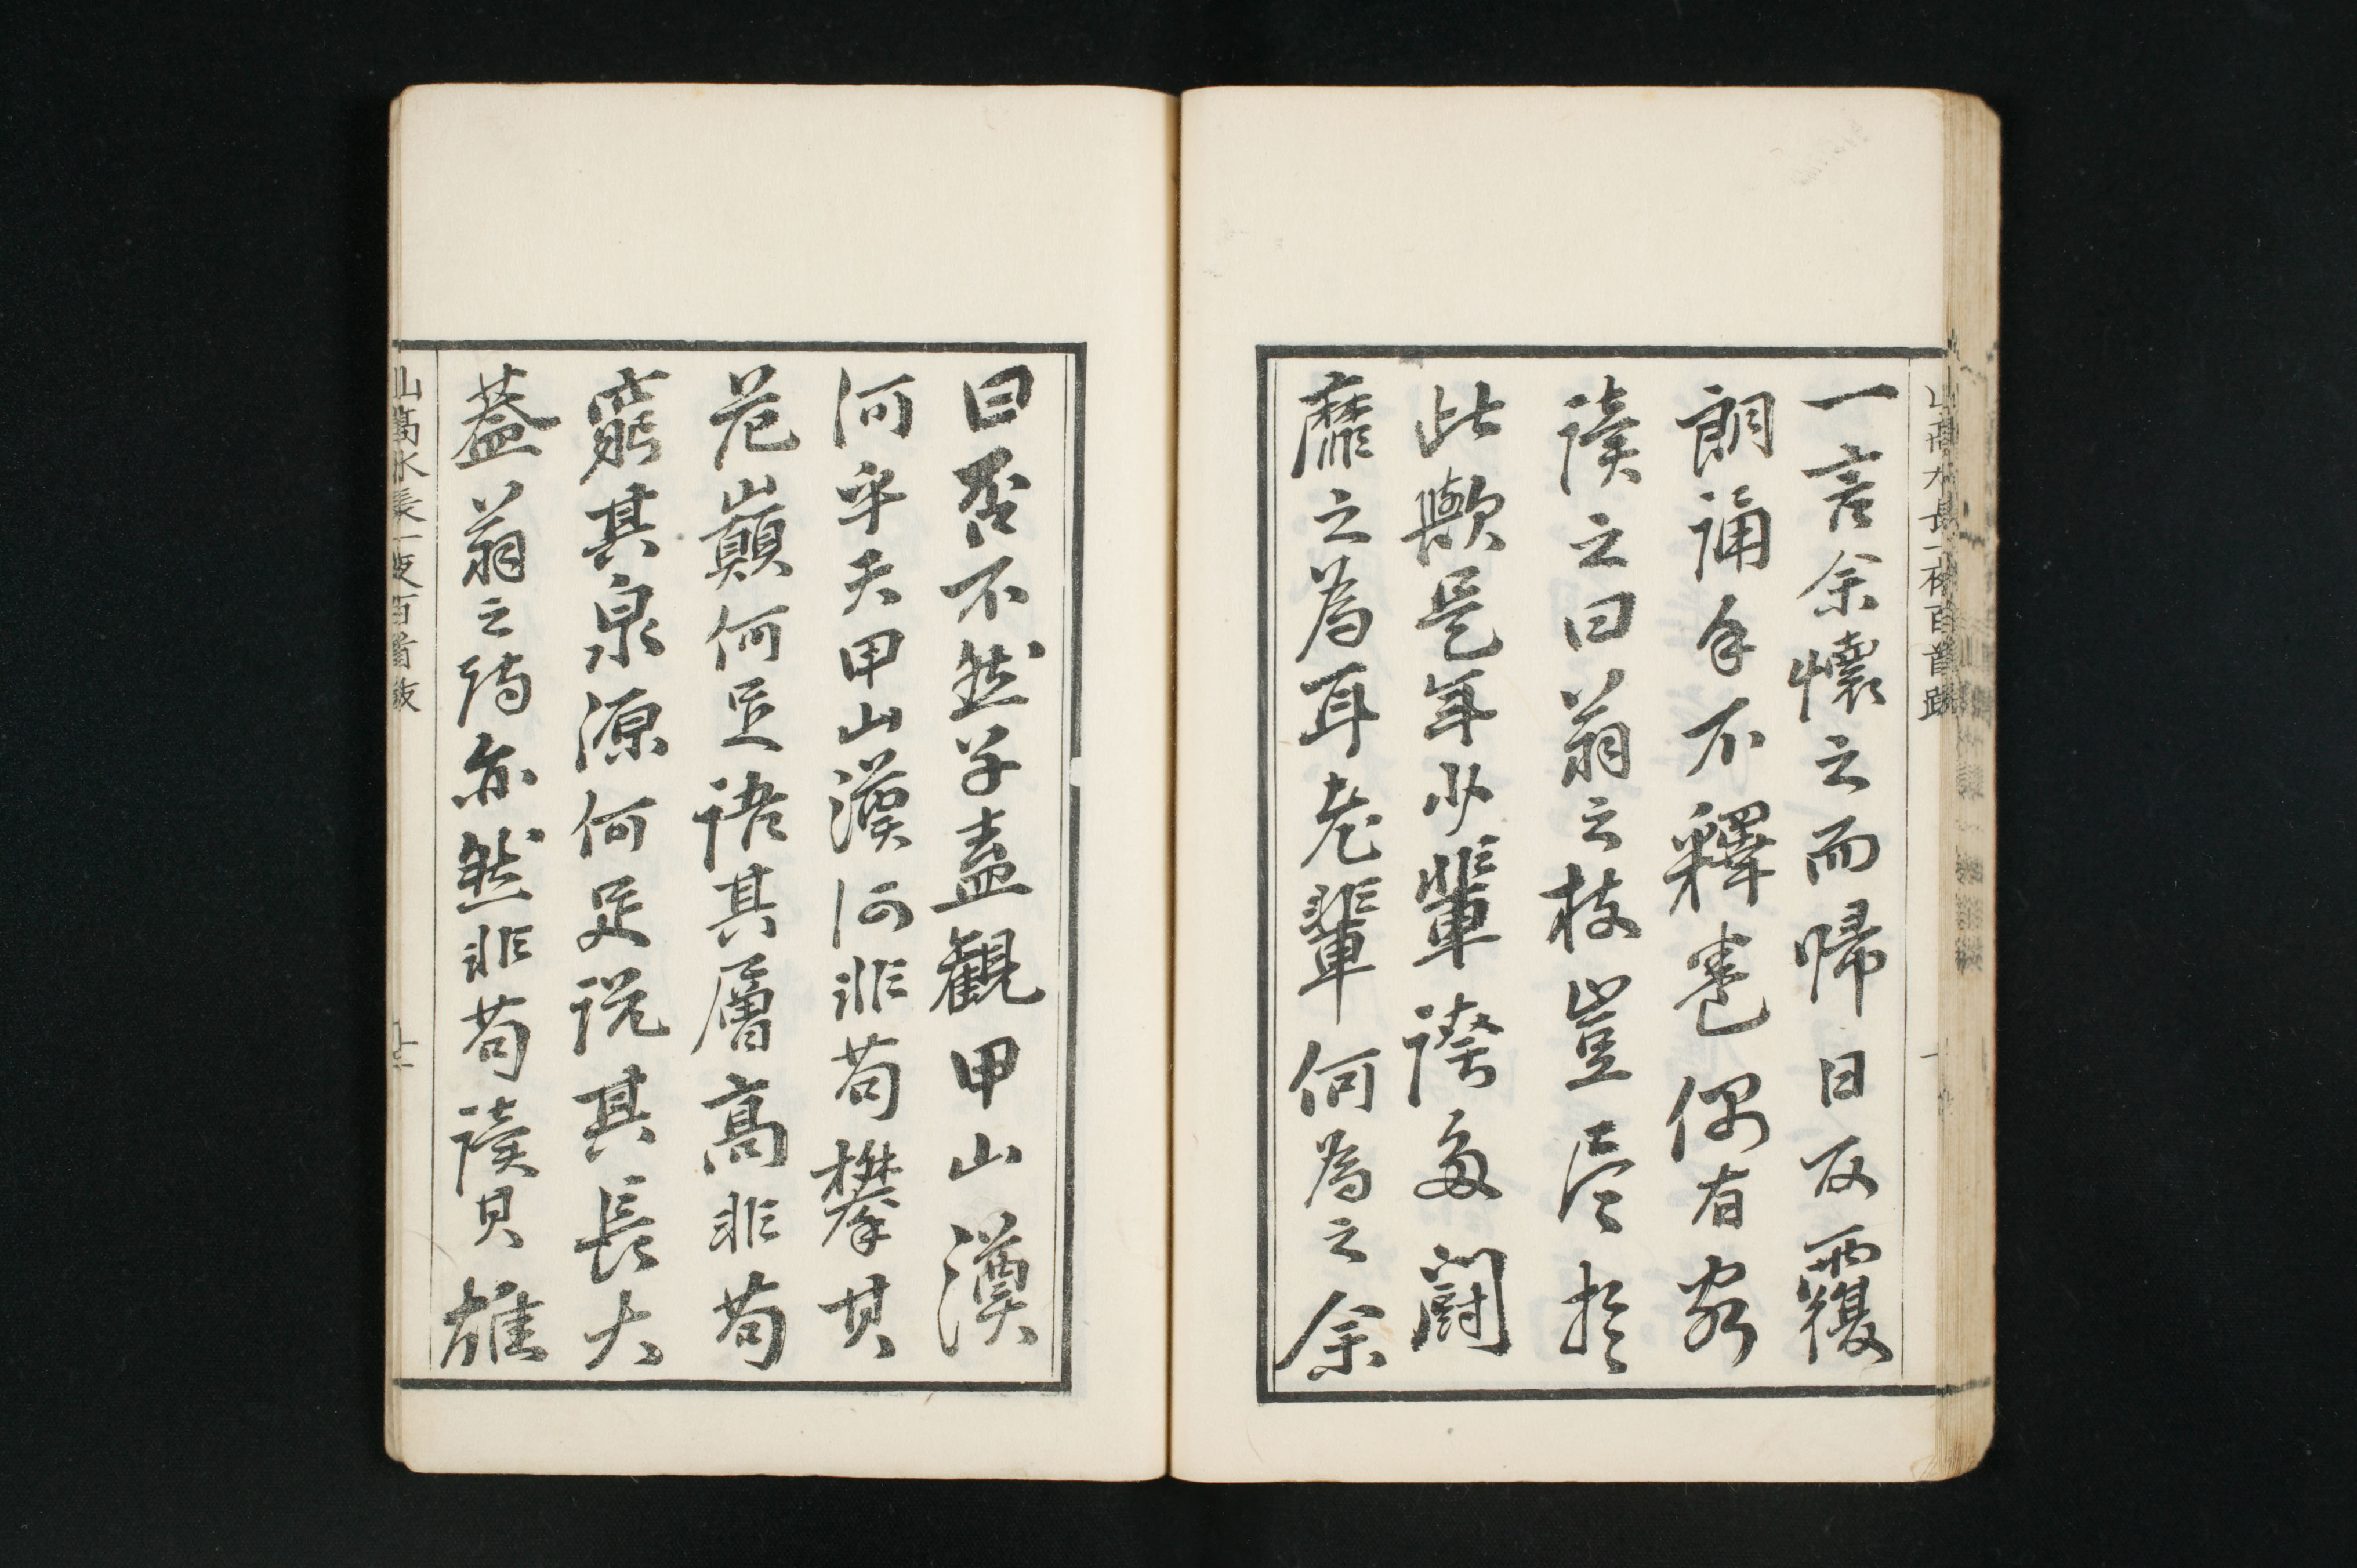 山高水長一夜百首跋
一言余懐之而帰日反覆
朗誦手不釋巻偶有客
讀之曰翁之技豈尽於
此歟是年少輩誇多闘
靡之為耳老輩何為之余
曰否不然子盍観甲山漢
河乎夫甲山漢河非苟攀其
巓何足語其層高非苟
窮其泉源何足説其長大
蓋翁之詩亦然非苟讀其雄
山高水長一夜百首跋